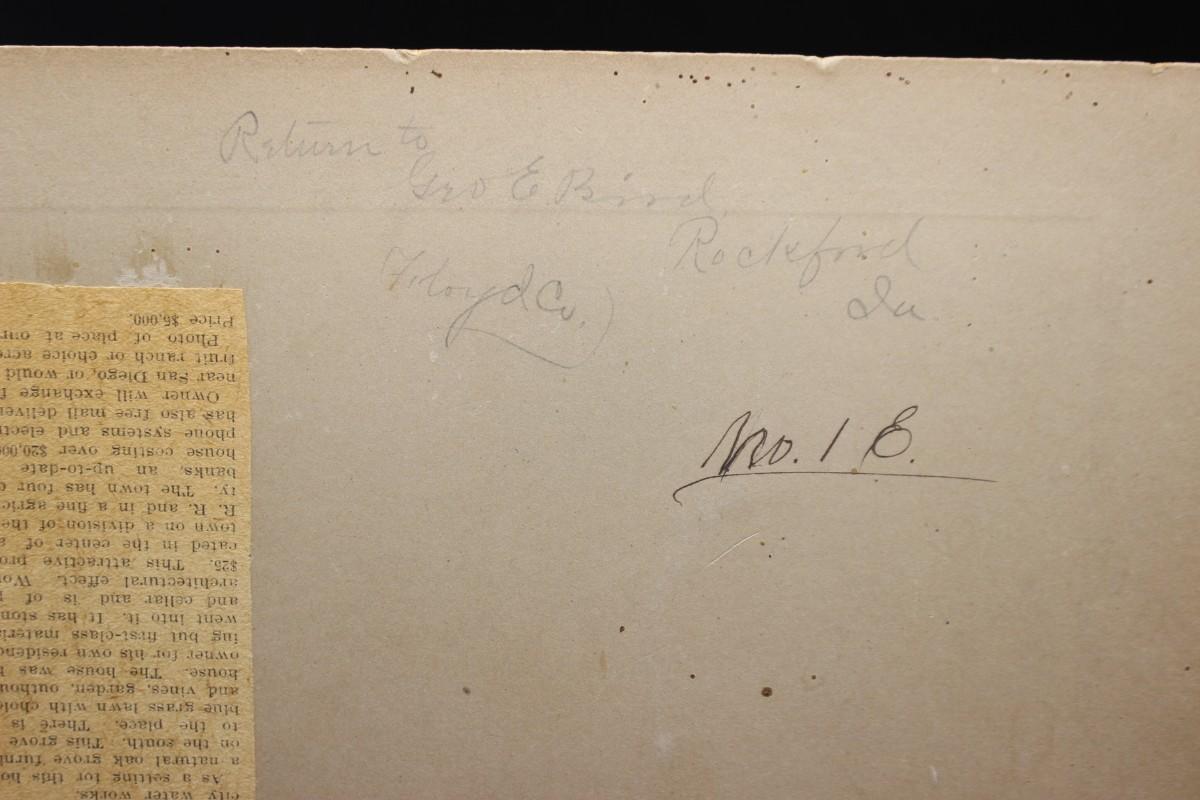 Return to
Geo E Bird
Rockford
Floyd Co.)
Ia.
No. 1 E.
city water works.
As a setting for this ho
a natural oak grove furni
on the south. This grove
to the place. There is
blue grass lawn with choi
and vines, garden, outhou
house. The house was b
owner for his own residenc
ing but first-class materia
went into it. It has ston
and cellar and is of p
architectural effect. Wor
$25. This attractive pro
cated in the center of a
town on a division of the
R. R. and in a fine agric
ty. The town has four c
banks, an up-to-date
house costing over $20,000
phone systems and electr
has also free mail deliver
Owner will exchange f
near San Diego, or would
fruit ranch or choice acre
Photo of place at our
Price $5,000.